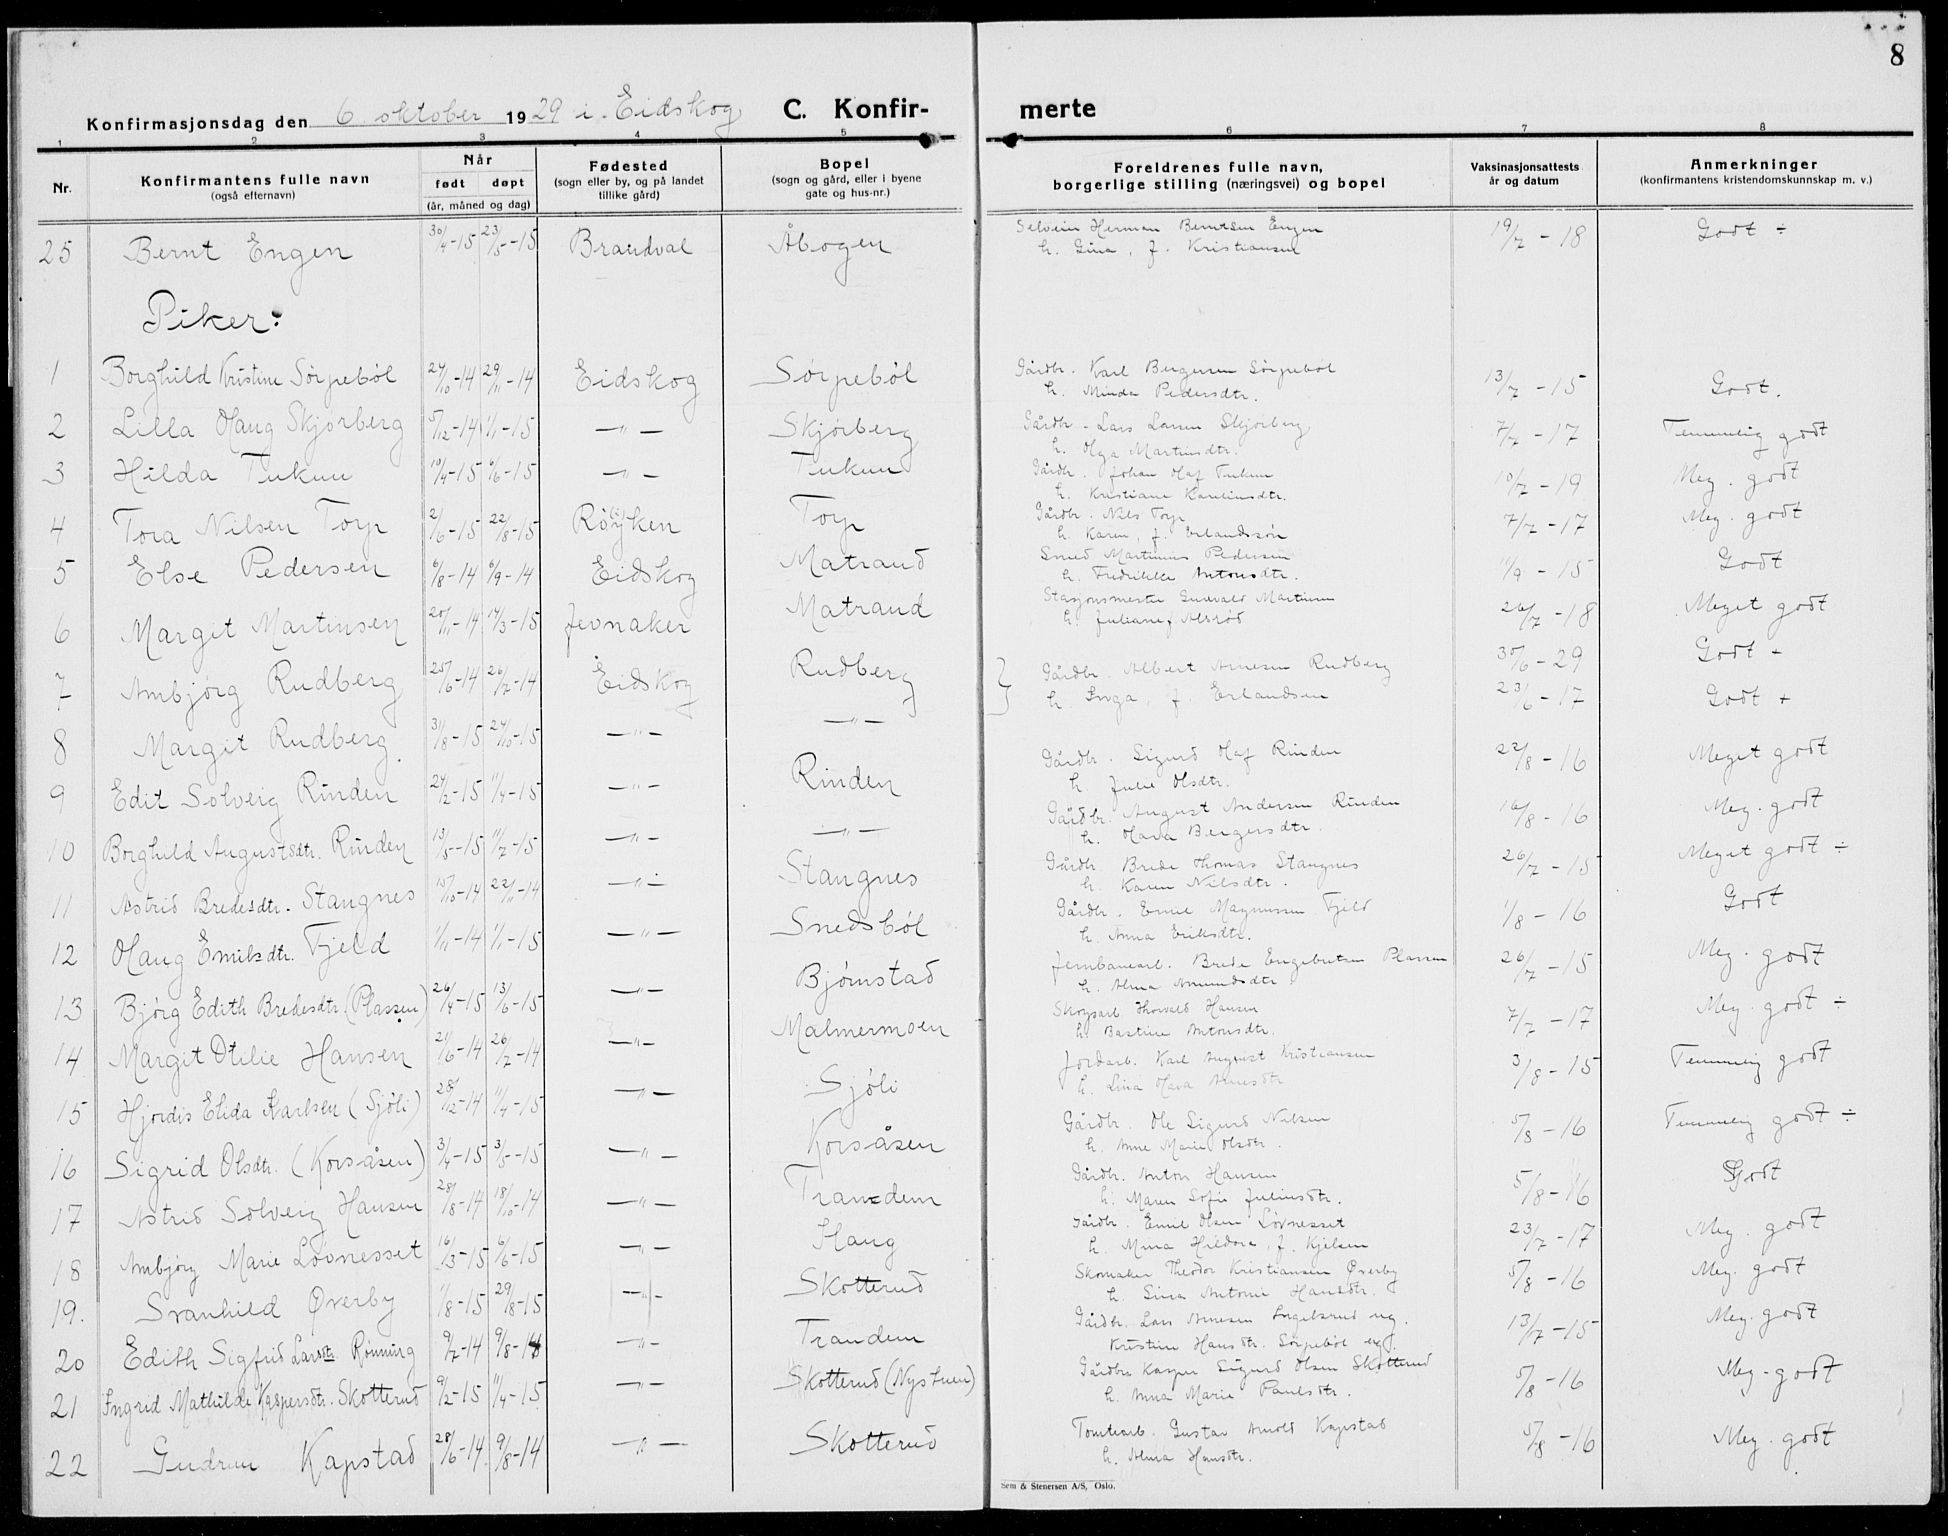 8
Konfirmasjonsdag den 6 oktober 1929 i Eidskog C. Konfir- merte
1 2 3 4 5 6 7 8
Nr. Konfirmantens fulle navn (også efternavn) Når født døpt (år, måned og dag) Fødested (sogn eller by, og på landet tillike gård) Bopel (sogn og gård, eller i byene gate og hus-nr.) Foreldrenes fulle navn, borgerlige stilling (næringsvei) og bopel Vaksinasjonsattests år og datum Anmerkninger (konfirmantens kristendomskunnskap m. v.)
25 Bernt Engen 30/4-15 23/5-15 Brandval Åbogen Herman Berntsen Engen 19/7-18 Godt ÷
h. Gina, f. Kristiansen
Piker:
1 Borghild Kristine Sørpebøl 24/10-14 29/11-14 Eidskog Sørpebøl Gårdbr. Karl Bergersen Sørpebøl 13/7-15 Godt.
h. Minda Pedersdtr.
2 Lilla Olaug Skjørberg 5/12-14 1/1-15 -"- Skjørberg Gårdbr. Lars Larsen Skjørberg 7/7-17 Temmelig godt
h. Olga Martinsdtr.
3 Hilda Tukun 10/4-15 6/6-15 -"- Tukun Gårdbr. Johan Olaf Tukun 10/7-19 Meg. godt
h. Kristiane Karelinsdtr.
4 Tora Nilsen Torp 2/6-15 22/8-15 Røyken Torp Gårdbr. Nils Torp 7/7-17 Meg. godt
h. Karen, f. Erlandssøn
5 Else Pedersen 6/8-14 6/9-14 Eidskog Matrand Smed Martinius Pedersen 11/9-15 Godt
h. Fredrikke Antonsdtr.
6 Margit Martinsen 20/11-14 14/3-15 Jevnaker Matrand Stasjonsmester Martinsen 26/7-18 Meget godt
h. Juliane f. Alsrød
7 Ambjørg Rudberg 25/6-14 26/7-14 Eidskog Rudberg Gårdbr. Albert Arnesen Rudberg 30/6-29 Godt -
h. Inga, f. Erlandsen 23/6-17 Godt +
8 Margit Rudberg 31/8-15 24/10-15 -"- -"-
9 Edit Solveig Rinden 24/2-15 11/4-15 -"- Rinden Gårdbr. Sigurd Olaf Rinden 22/8-16 Meget godt
h. Julie Olsdtr.
10 Borghild Augustsdtr. Rinden 13/5-15 11/7-15 -"- -"- Gårdbr. August Andersen Rinden 16/8-16 Meg. godt
h. Olava Bergersdtr.
11 Astrid Bredesdtr. Stangnes 15/10-14 22/11-14 -"- Stangnes Gårdbr. Brede Thomas Stangnes 26/7-15 Meget godt ÷
h. Karen Nilsdtr.
12 Olaug Emilsdtr. Fjeld 1/11-14 1/1-15 -"- Snedsbøl Gårdbr. Emil Magnussen Fjeld 1/8-16 Godt
h. Anna Eriksdtr.
13 Bjørg Edith Bredesdtr. (Plassen) 26/4-15 13/6-15 -"- Bjørnstad Jernbanearb. Brede Engebretsen Plassen 26/7-15 Meg. godt
h. Alma Amundsdtr.
14 Margit Otilie Hansen 21/6-14 26/7-14 -"- Malmermoen Skogsarb. Thorvald Hansen 7/7-17 Meg. godt ÷
h. Bastine Antonsdtr.
15 Hjørdis Elida Karlsen (Sjøli) 28/12-14 11/4-15 -"- Sjøli Jordarb. Karl August Kristiansen 3/8-15 Temmelig godt
h. Lina Olava Arnesdtr
16 Sigrid Olsdtr. (Korsåsen) 3/4-15 3/5-15 -"- Korsåsen Gårdbr. Ole Sigurd Nilsen 5/8-16 Temmelig godt ÷
h. Anne Marie Olsdtr.
17 Astrid Solveig Hansen 28/8-14 18/10-14 -"- Trandem Gårdbr. Anton Hansen 5/8-16 Godt
h. Maren Sofie Juliusdtr.
18 Ambjørg Marie Løvnesset 16/3-15 6/6-15 -"- Haug Gårdbr. Emil Olsen Løvnesset 23/7-17 Meg. godt
h. Mina Hildora, f. Kjelsen
19. Svanhild Øverby 1/8-15 29/8-15 -"- Skotterud Skomaker Theodor Kristiansen Øverby 5/8-16 Meg. godt
h. Lina Antonie Hansdtr.
20 Edith Sigfrid Larsdtr. Rønning 9/7-14 9/8-14 -"- Trandem Gårdbr. Lars Arnesen Ingelsrud ug. 13/7-15 Meg. godt
Kristine Hansdtr. Sørpebøl ug.
21 Ingrid Mathilde Kaspersdtr. Skotterud 9/2-15 11/4-15 -"- Skotterud (Nystuen) Gårdbr. Kasper Sigurd Olsen Skotterud 5/8-16 Meg. godt
h. Anna Marie Paulsdtr.
22 Gudrun Kapstad 28/6-14 9/8-14 -"- Skotterud Tomtearb. Gustav Arnold Kapstad 5/8-16 Meg. godt
h. Alma Hansdtr.
Sem & Stenersen A/S, Oslo.